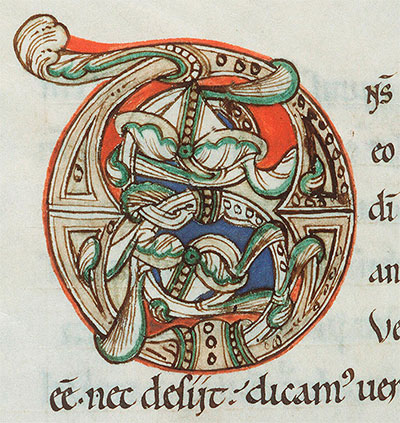 DN̅S̅
eo
di̅
an
Ve
ee̅· nec desijt·: dicamꝰ uer